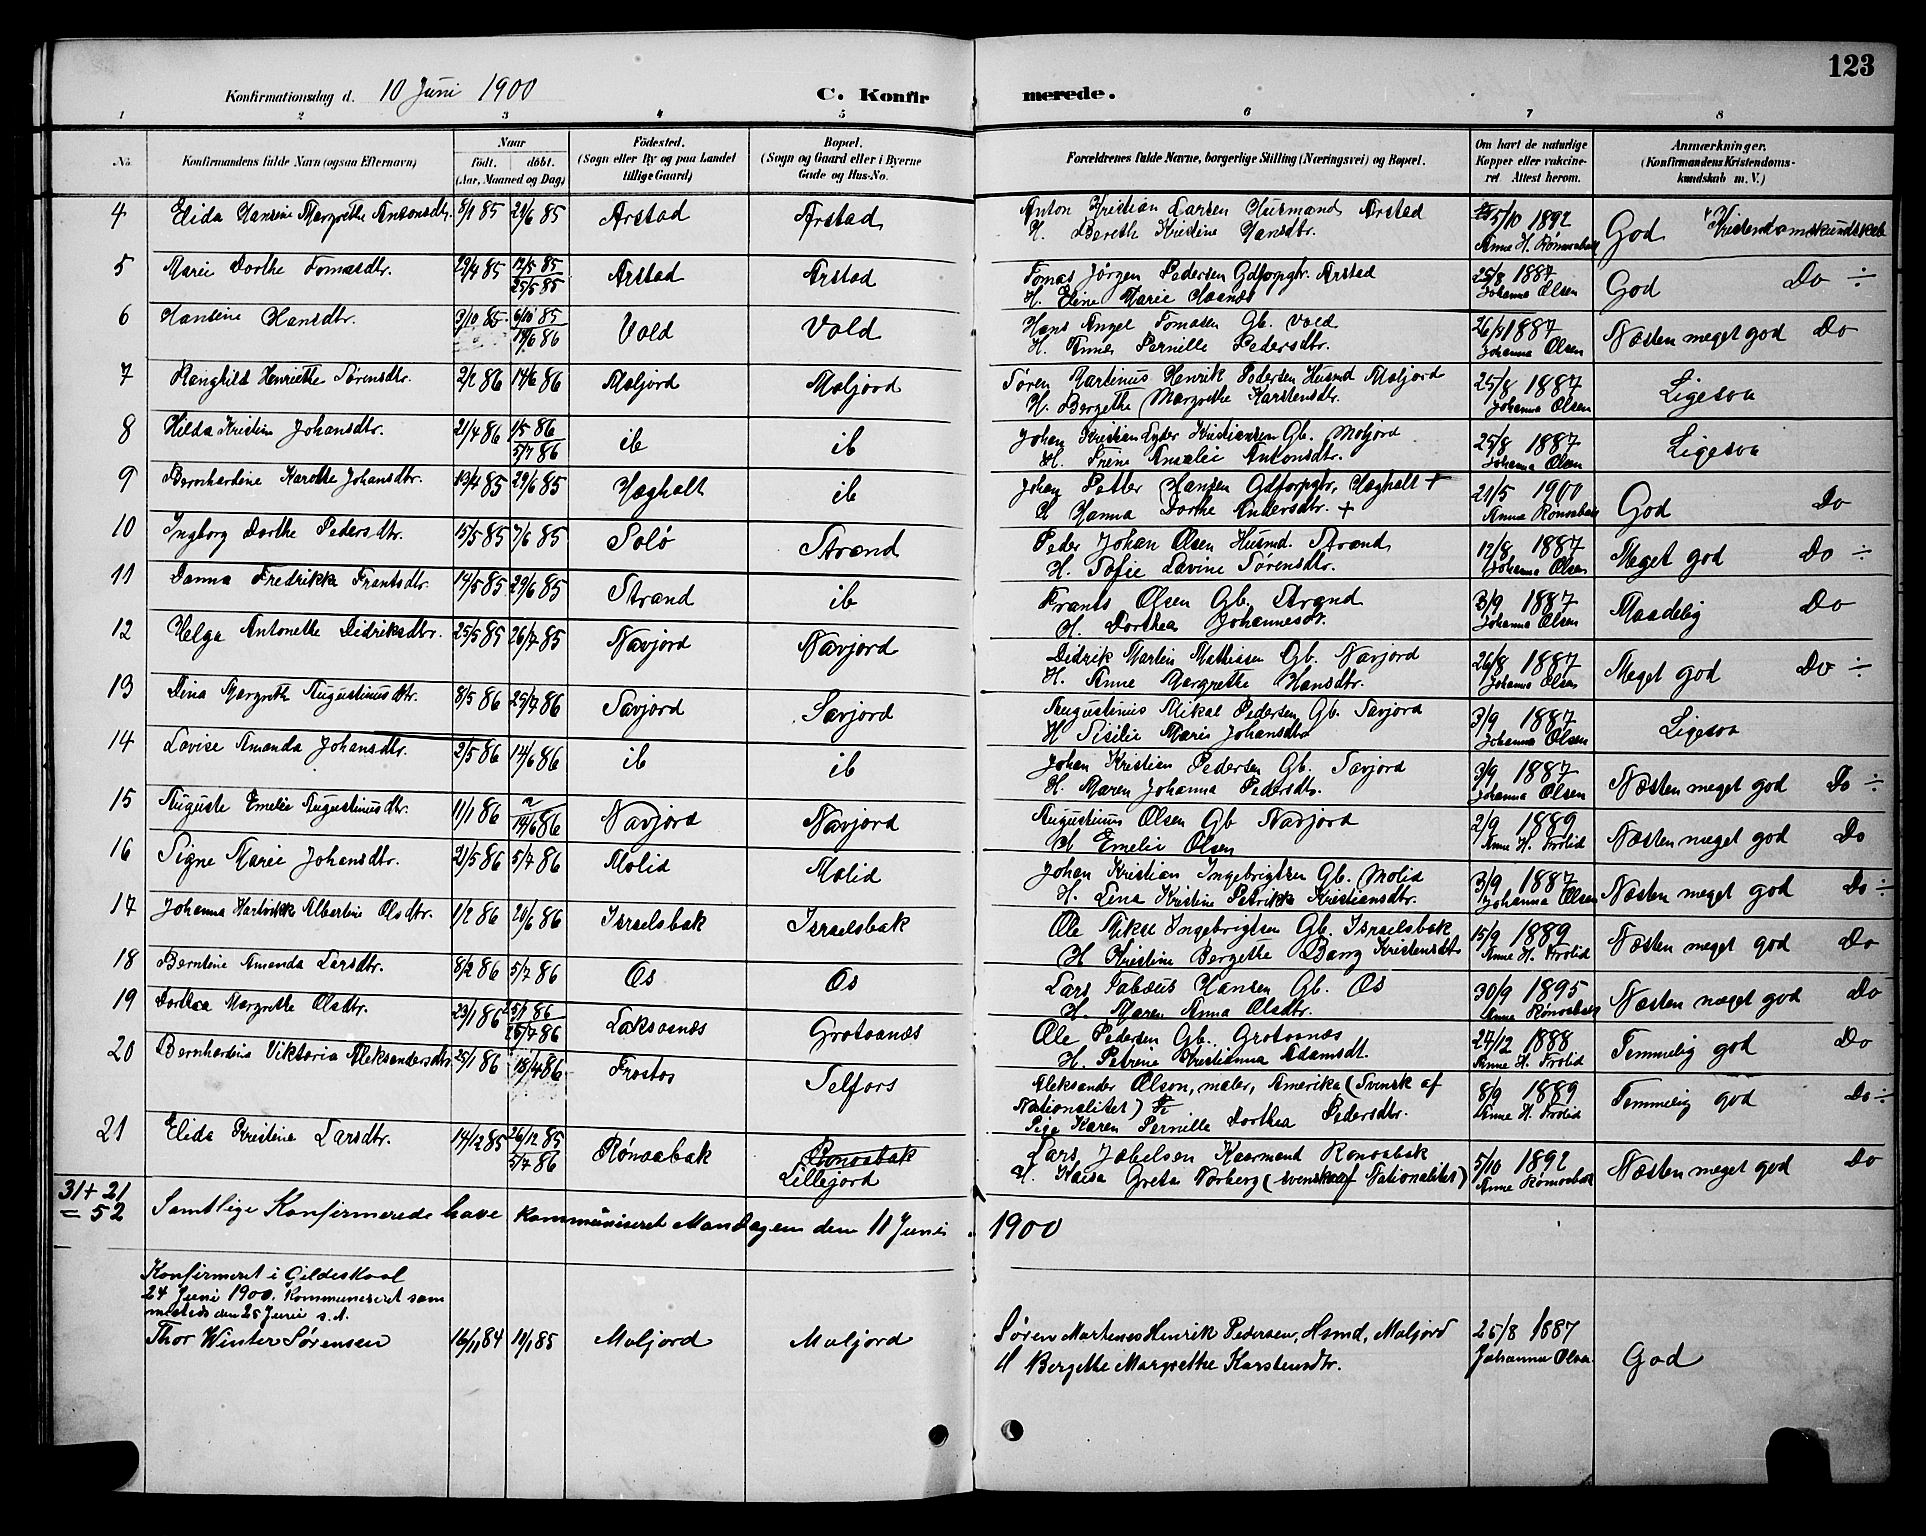 123
Konfirmationsdag d. 10 Juni 1900
C. Konfir merede.
1 2 3 4 5 6 7 8
No. Konfirmandens fulde Navn (ogsaa Efternavn) Naar født. døbt. (Aar, Maaned og Dag) Fødested. (Sogn eller By og paa Landet tillige Gaard) Bopæl. (Sogn og Gaard eller i Byerne Gade og Hus-No. Forældrenes fulde Navne, borgerlige Stilling (Næringsvei) og Bopæl. Om havt de naturlige Kopper eller vakcineret Attest herom. Anmærkninger. (Konfirmandens Kristendomskundskab m. V.)
4 Elida Hansine Margrethe Antonsdtr. 8/1 85 21/6 85 Arstad Arstad Anton Kristian Larsen Husmand Arstad 5/10 1892 God Kristendomskundskab
H. Bereth Kristine Hansdtr. Anne H. Rønaabak
5 Marie Dorthe Tomasdtr. 29/4 85 17/5 85 25/5 85 Arstad Arstad Tomas Jørgen Pedersen Gdforpgtr. Arstad 25/8 1887 God Do ÷
H. Eline Marie Johanna Olsen
6 Hansine Hansdtr. 3/10 85 6/10 85 14/6 86 Vold Vold Hans Angel Tomasen Gb. Vold 26/8 1887 Næsten meget god Do
H. Anne Pernille Pedersdtr. Johanna Olsen
7 Ranghild Henriette Sørensdtr. 2/2 86 14/6 86 Moljord Moljord Søren Martinus Henrik Pedersen Husmd Moljord 25/8 1887 Ligesaa
H. Bergethe Margrethe Karstensdtr. Johanna Olsen
8 Hilda Kristine Johansdtr. 21/4 86 1/5 86 5/7 86 ib ib Johan Kristian Lyder Kristiansen Gb. Moljord 25/8 1887 Ligesaa
H. Irene Amalie Antonsdtr. Johanna Olsen
9 Bernhardine Karothe Johansdtr. 13/4 85 29/6 85 Hæghalt ib Johan Petter Hansen Gdforpgtr, Hæghalt + 21/5 1900 God Do
H Hanna Dorthe Andersdtr. + Anna Rønaabak
10 Ingborg Dorthe Pedersdtr. 15/5 85 7/6 85 Solø Strand Peder Johan Olsen Husmd. Strand 12/8 1887 Meget god Do ÷
H. Sofie Lavine Sørensdtr. Johanna Olsen
11 Danna Fredrikke Frantsdtr. 14/5 85 29/6 85 Strand ib Frants Olsen Gb. Strand 3/9 1887 Maadelig Do
H. Dorthea Johannesdr. Johanna Olsen
12 Helga Antonette Didriksdtr. 25/5 85 26/7 85 Navjord Navjord Didrik Martin Mathissen Gb. Navjord 26/8 1887 Meget god Do ÷
H. Anne Margrethe Hansdtr. Johanna Olsen
13 Dina Margreth Augustinusdtr. 8/5 86 25/7 86 Savjord Savjord Augustinus Mikal Pedersen Gb. Savjord 3/9 1887 Ligesaa
H Sisilie Marie Johansdtr Johanna Olsen
14 Lovise Amanda Johansdtr. 2/5 86 14/6 86 ib ib Johan Kristian Pedersen Gb. Savjord 3/9 1887 Næsten meget god Do ÷
H. Maren Johanna Pedersdtr. Johanna Olsen
15 Auguste Emelie Augustinusdtr. 11/1 86 14/6 86 Navjord Navjord Augustinus Olsen Gb Navjord 2/9 1889 Næsten meget god Do
H Emelie Olsen Anne H. Trolid
16 Signe Marie Johansdtr. 21/5 86 5/7 86 Molid Molid Johan Kristian Ingebrigtsen Gb. Molid 3/9 1887 Næsten meget god Do ÷
H. Lena Kristine Petrikke Kristiansdtr. Johanna Olsen
17 Johanna Hartvikke Albertine Olsdtr. 1/2 86 20/6 86 Israelsbak Israelsbak Ole Mikal Ingebrigtsen Gb. Israelsbak 15/9 1889 Næsten meget god Do
H Kristine Bergethe Barry Kristensdtr Anne H. Trolid
18 Berntine Amanda Larsdtr. 8/2 86 5/7 86 Os Os Lars Tabæus Hansen Gb. Os 30/9 1895 Næsten meget god Do
H. Maren Anna Olsdtr. Anna Rønaabak
19 Dorthea Margrethe Olsdtr. 23/1 86 25/7 86 Laksaanæs Grotaanæs Ole Pedersen Gb. Grotaanæs 27/12 1888 Temmelig god Do
H. Petrine Kristianna Adamsdt. Anne H. Trolid
20 Bernhardine Viktoria Aleksandersdtr 25/1 86 18/4 86 Frostos Selfors Aleksander Olson, maler, Amerika (Svensk af 8/9 1889 Temmelig god Do ÷
Nationalitet)
Pige Karen Pernille Dorthea Pedersdtr. Anne H. Trolid
21 Elida Kristine Larsdtr. 14/12 85 26/12 85 5/7 86 Rønaabak Rønaabak Lillejord Lars Jakelsen Kaarmand Rønaabak 5/10 1892 Næsten meget god Do
H. Kaisa Greta Norberg (svensk af Nationalitet) Anne Rønaabak
31 + 21 = 52 Samtlige Konfirmerede have kommuniseret Mandagen den 11 Juni 1900
Konfirmeret i Gildeskaal
24 Juni 1900. Kommuniseret sam
mesteds den 25 Juni s. A.
Thor Winter Sørensen 16/11 84 11/1 85 Moljord Moljord Søren Martenes Henrik Pedersen, Hsmd, Moljord 25/8 1887 God
H Bergethe Margrethe Karstensdtr. Johanna Olsen